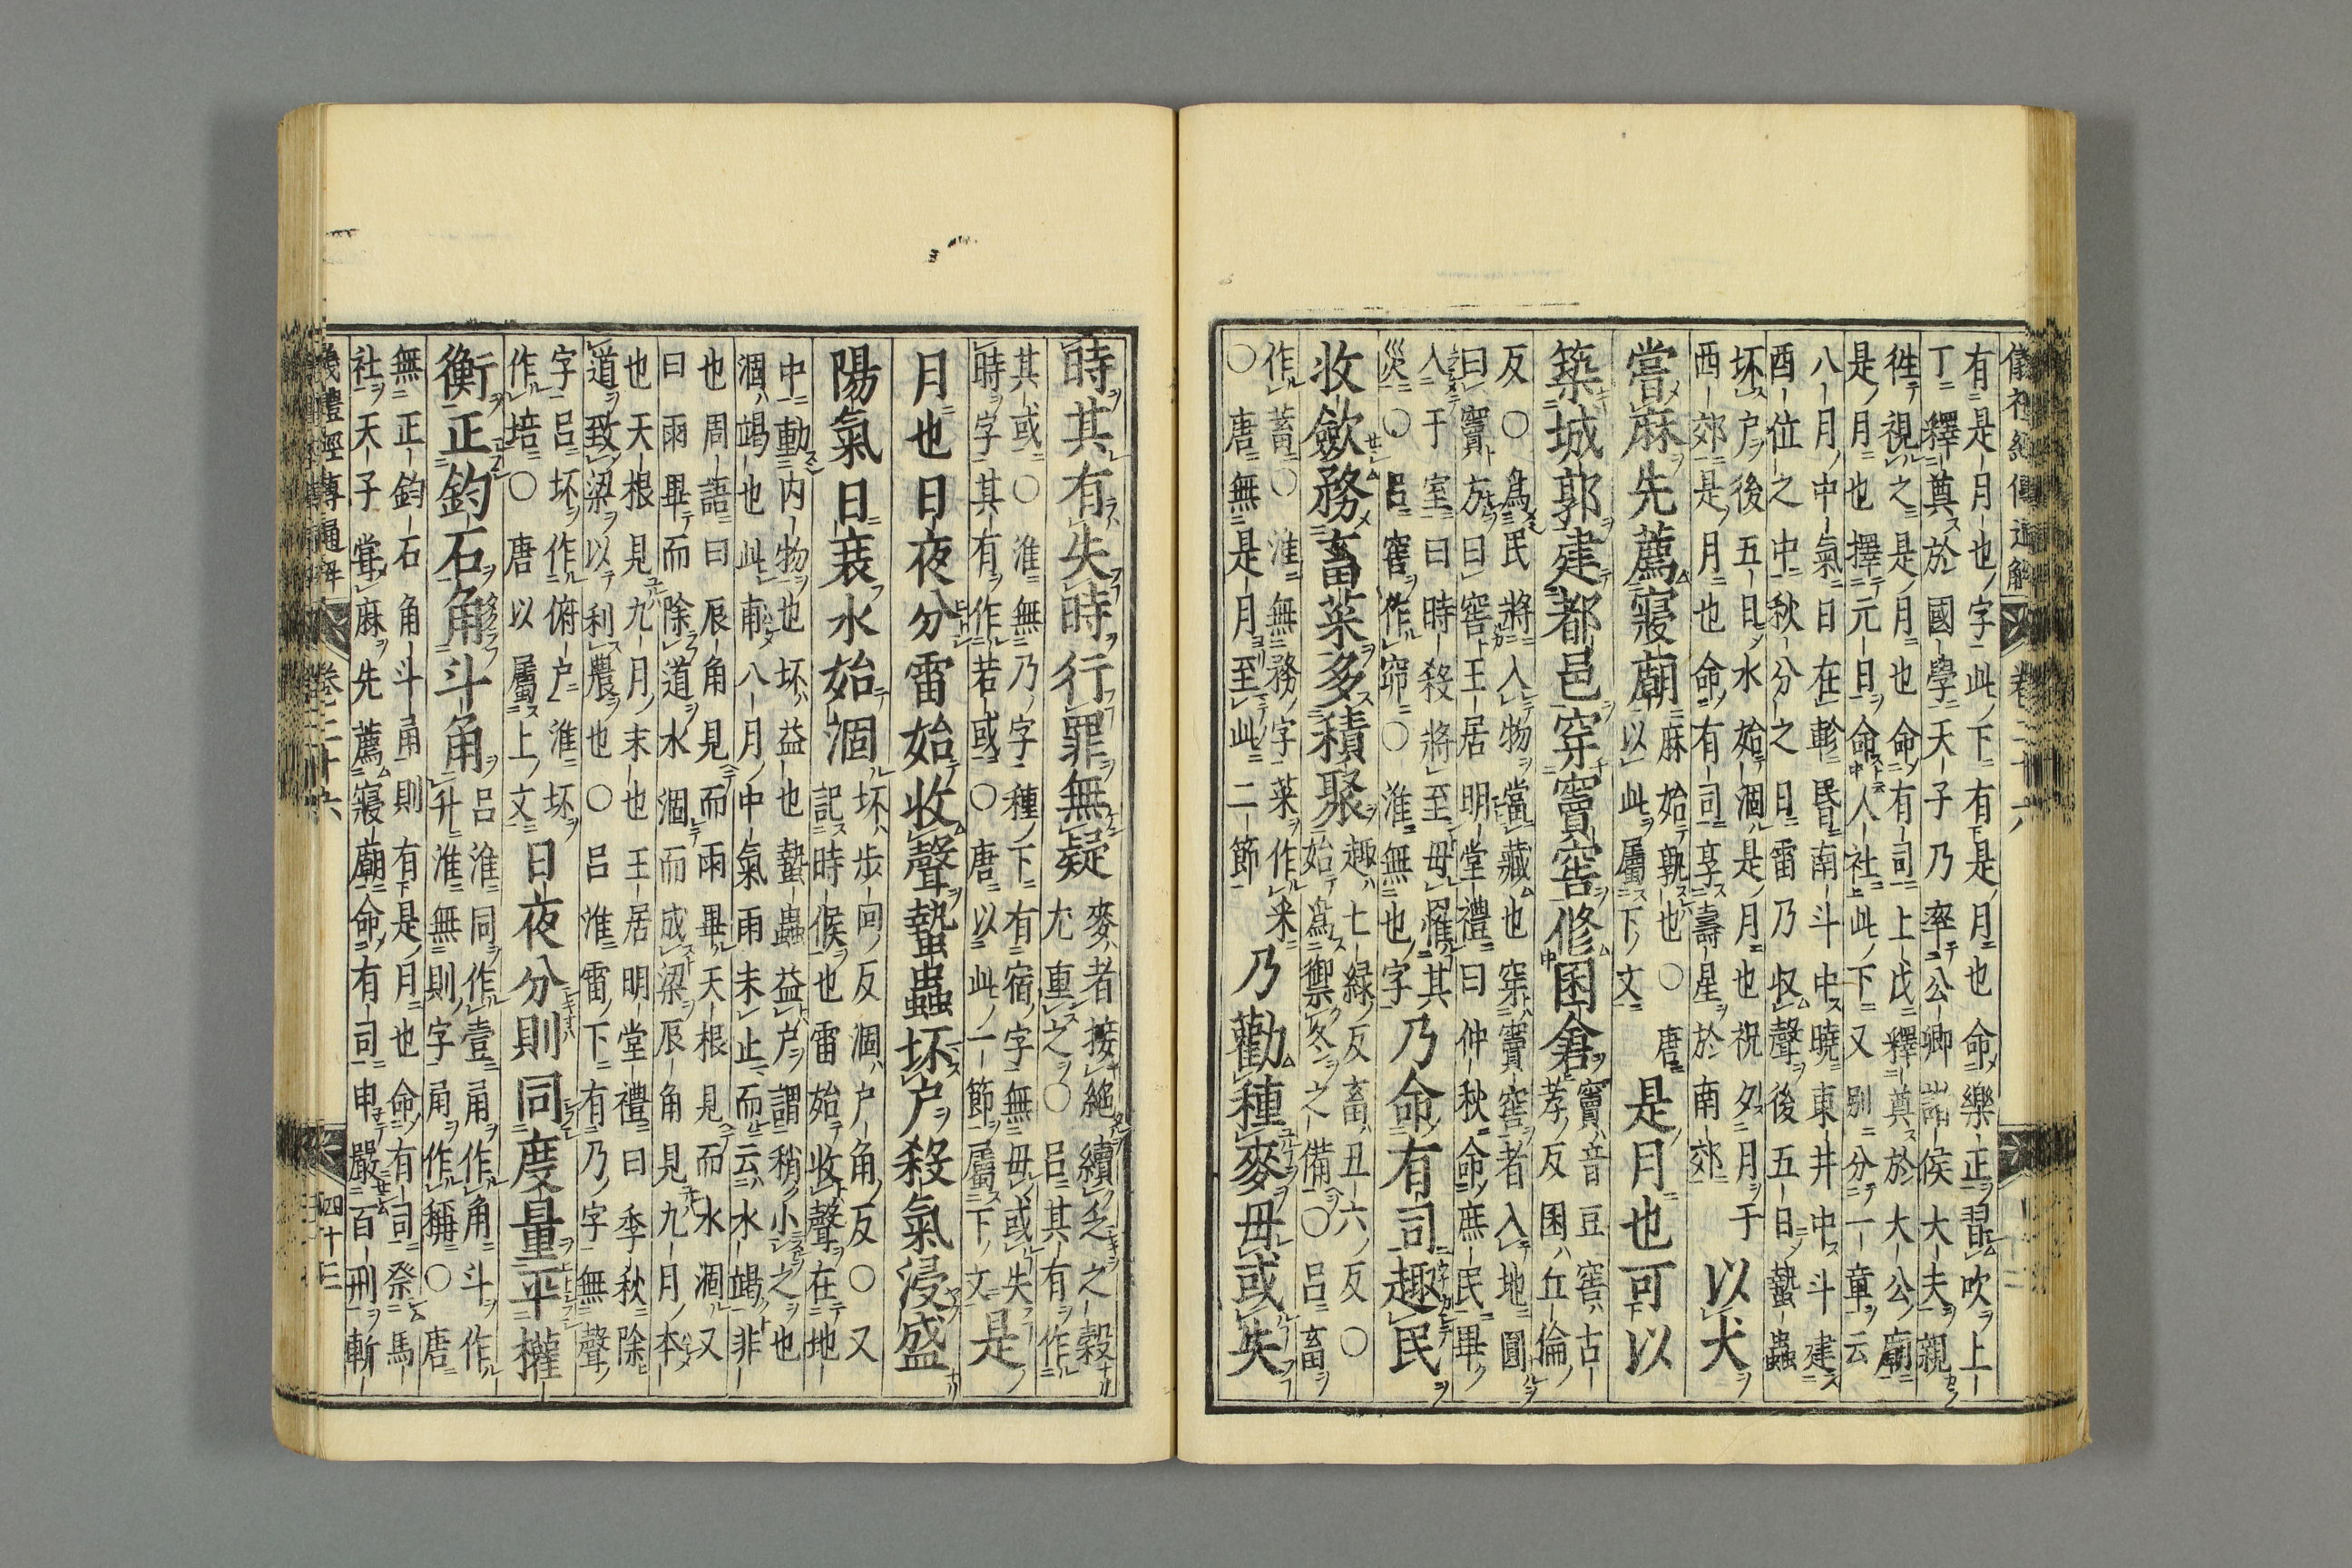 有是月也字此下有是月也命樂正習吹上
丁釋奠於國學天子乃率公卿諸侯大夫親
徃視之是月也命有司上戊釋奠於大公廟
是月也擇元日命人社此下又別分一章云
八月中氣日在軫昏南斗中曉東井中斗建
酉位之中秋分之日雷乃収聲後五日蟄蟲
坏户後五日水始涸是月也祝夕月于
西郊是月也命有司享壽星於南郊
以犬
嘗麻先薦寢廟
麻始孰也○唐
以此屬下文
是月也可以
築城郭建都邑穿竇窖修囷倉
竇音豆窖古
孝反囷丘倫
反○為民將入物當藏也穿竇窖者入地圓
曰竇方曰窖王居明堂禮曰仲秋命庶民畢
入于室曰時殺將至毋罹其
災○呂窖作窌○淮無也字
乃命有司趣民
收斂務畜菜多積聚
趣七緑反畜丑六反○
始為禦冬之備○呂畜
作蓄○淮無務字菜作采
○唐無是月至此二節
乃勸種麥毋或失
時其有失時行罪無疑
麥者接絶續乏之穀
尤重之○呂其有作
其或○淮無乃字種下有宿字無毋或失
時字其有作若或○唐以此一節屬下文
是
月也日夜分雷始收聲蟄蟲坏户殺氣浸盛
陽氣日衰水始涸
坏步囘反涸户角反○又
記時候也雷始收聲在地
中動内物也坏益也蟄蟲益户謂稍小之也
涸竭也此甫八月中氣雨未止而云水竭非
也周語曰辰角見而雨畢天根見而水涸又
曰雨畢而除道水涸而成梁辰角見九月本
也天根見九月末也王居明堂禮曰季秋除
道致梁以利農也○呂淮雷下有乃字無聲
字呂坏作俯户淮坏
作培○唐以屬上文
日夜分則同度量平權
衡正鈞石角斗甬
呂淮同作壹甬作角斗作
升淮無則字甬作稱○唐
無正鈞石角斗甬則有是月也命有司祭馬
社天子嘗麻先薦寢廟命有司申嚴百刑斬
儀禮經傳通解 卷二十六 四十三